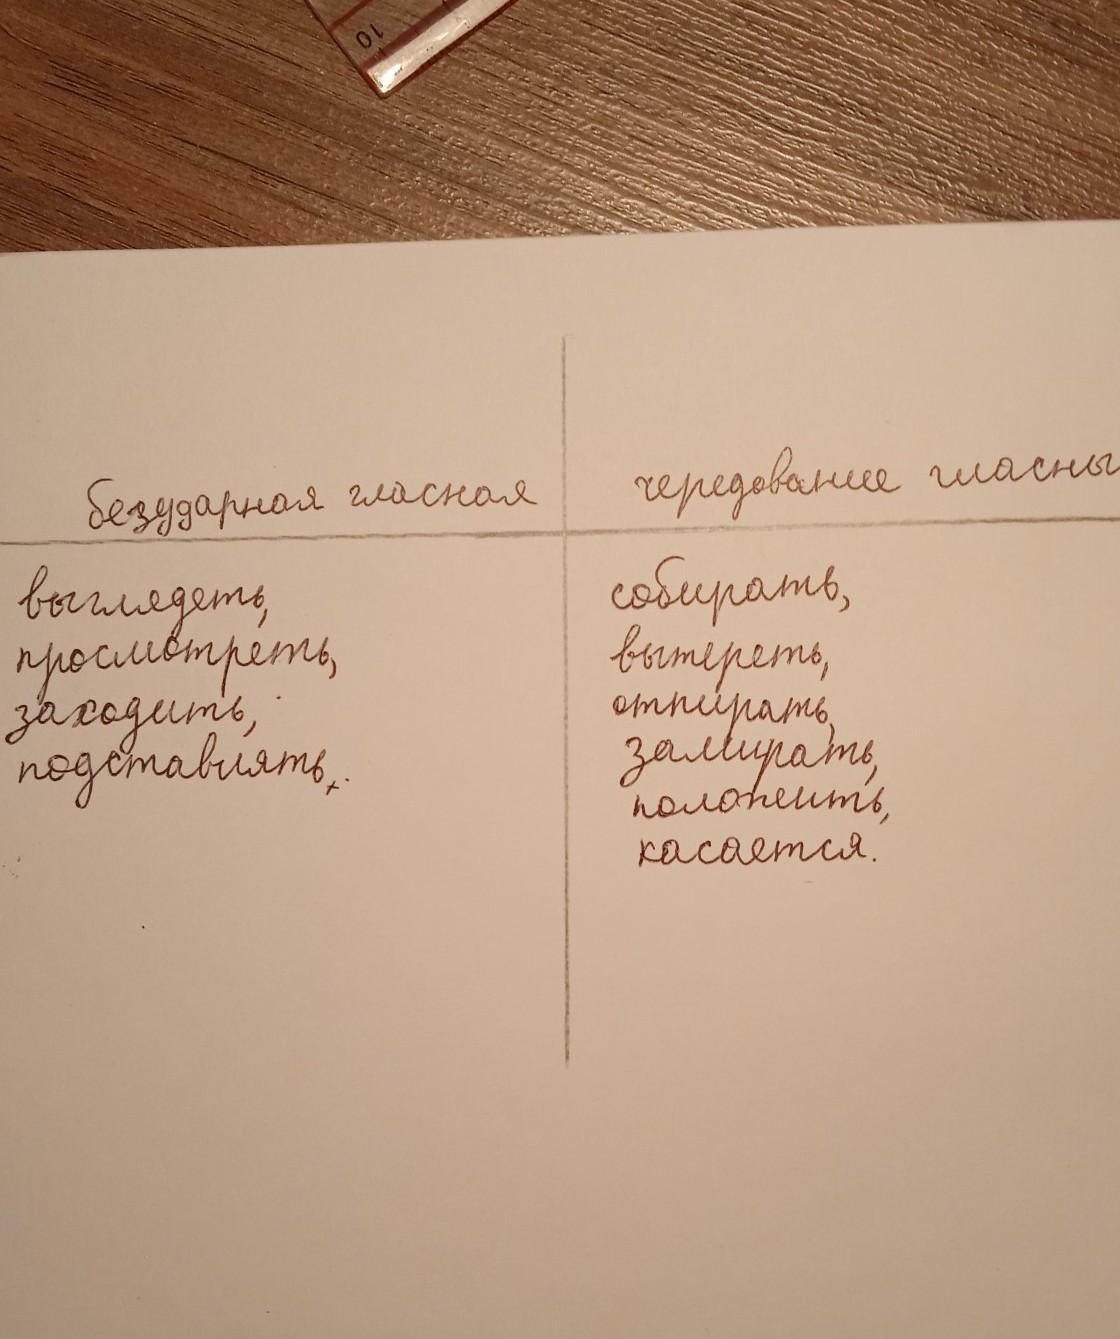 10
безударная гласная
чередование гласны
выглядеть,
просмотреть,
заходить,
подставлять,.
собирать,
вытереть,
отпирать,
замирать,
положить,
касается.